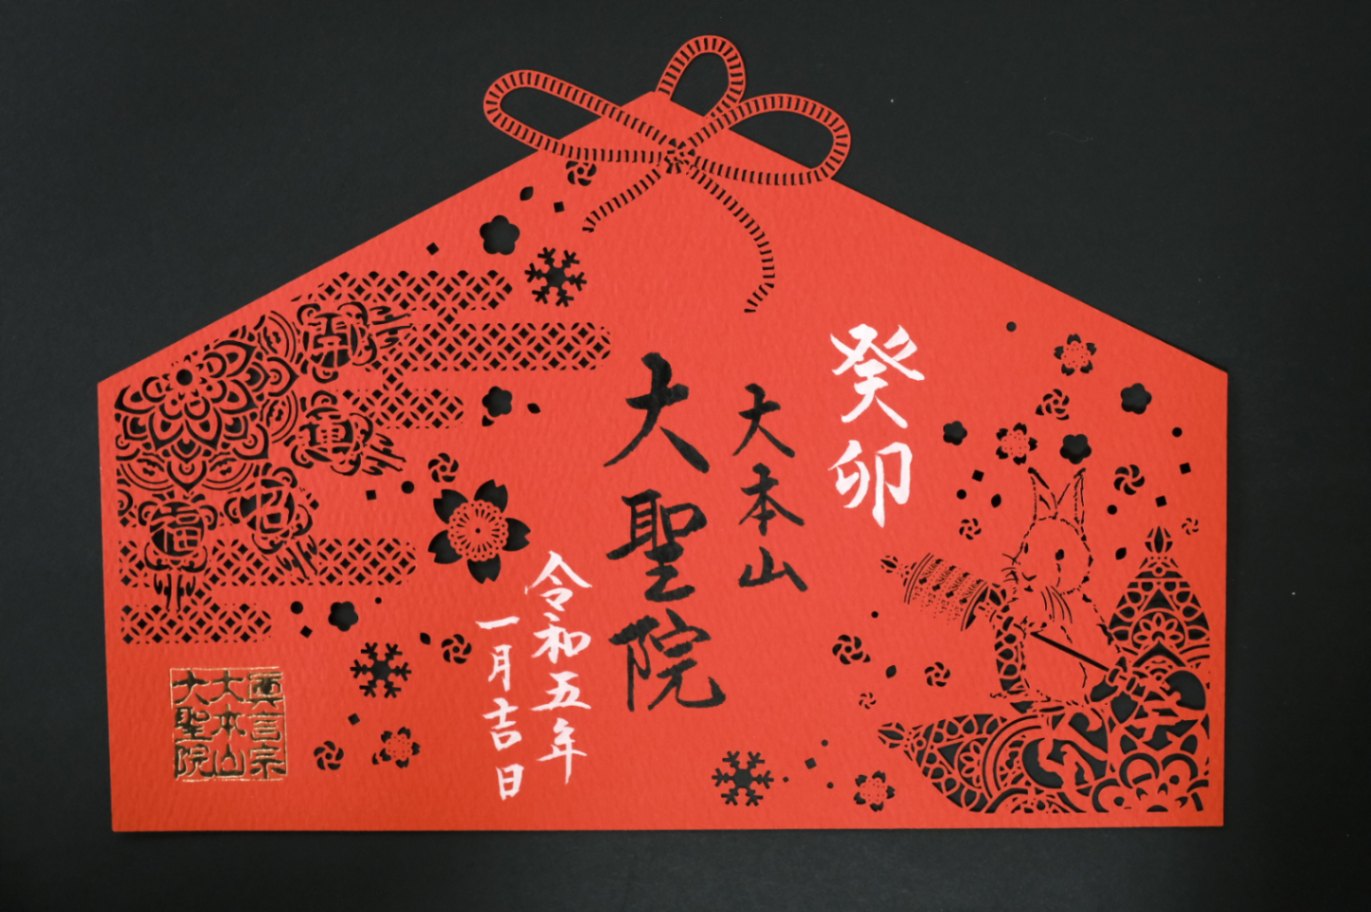 癸卯
大本山
大聖院
令和五年
一月吉日
開
運
招
福
眞言宗
大本山
大聖院